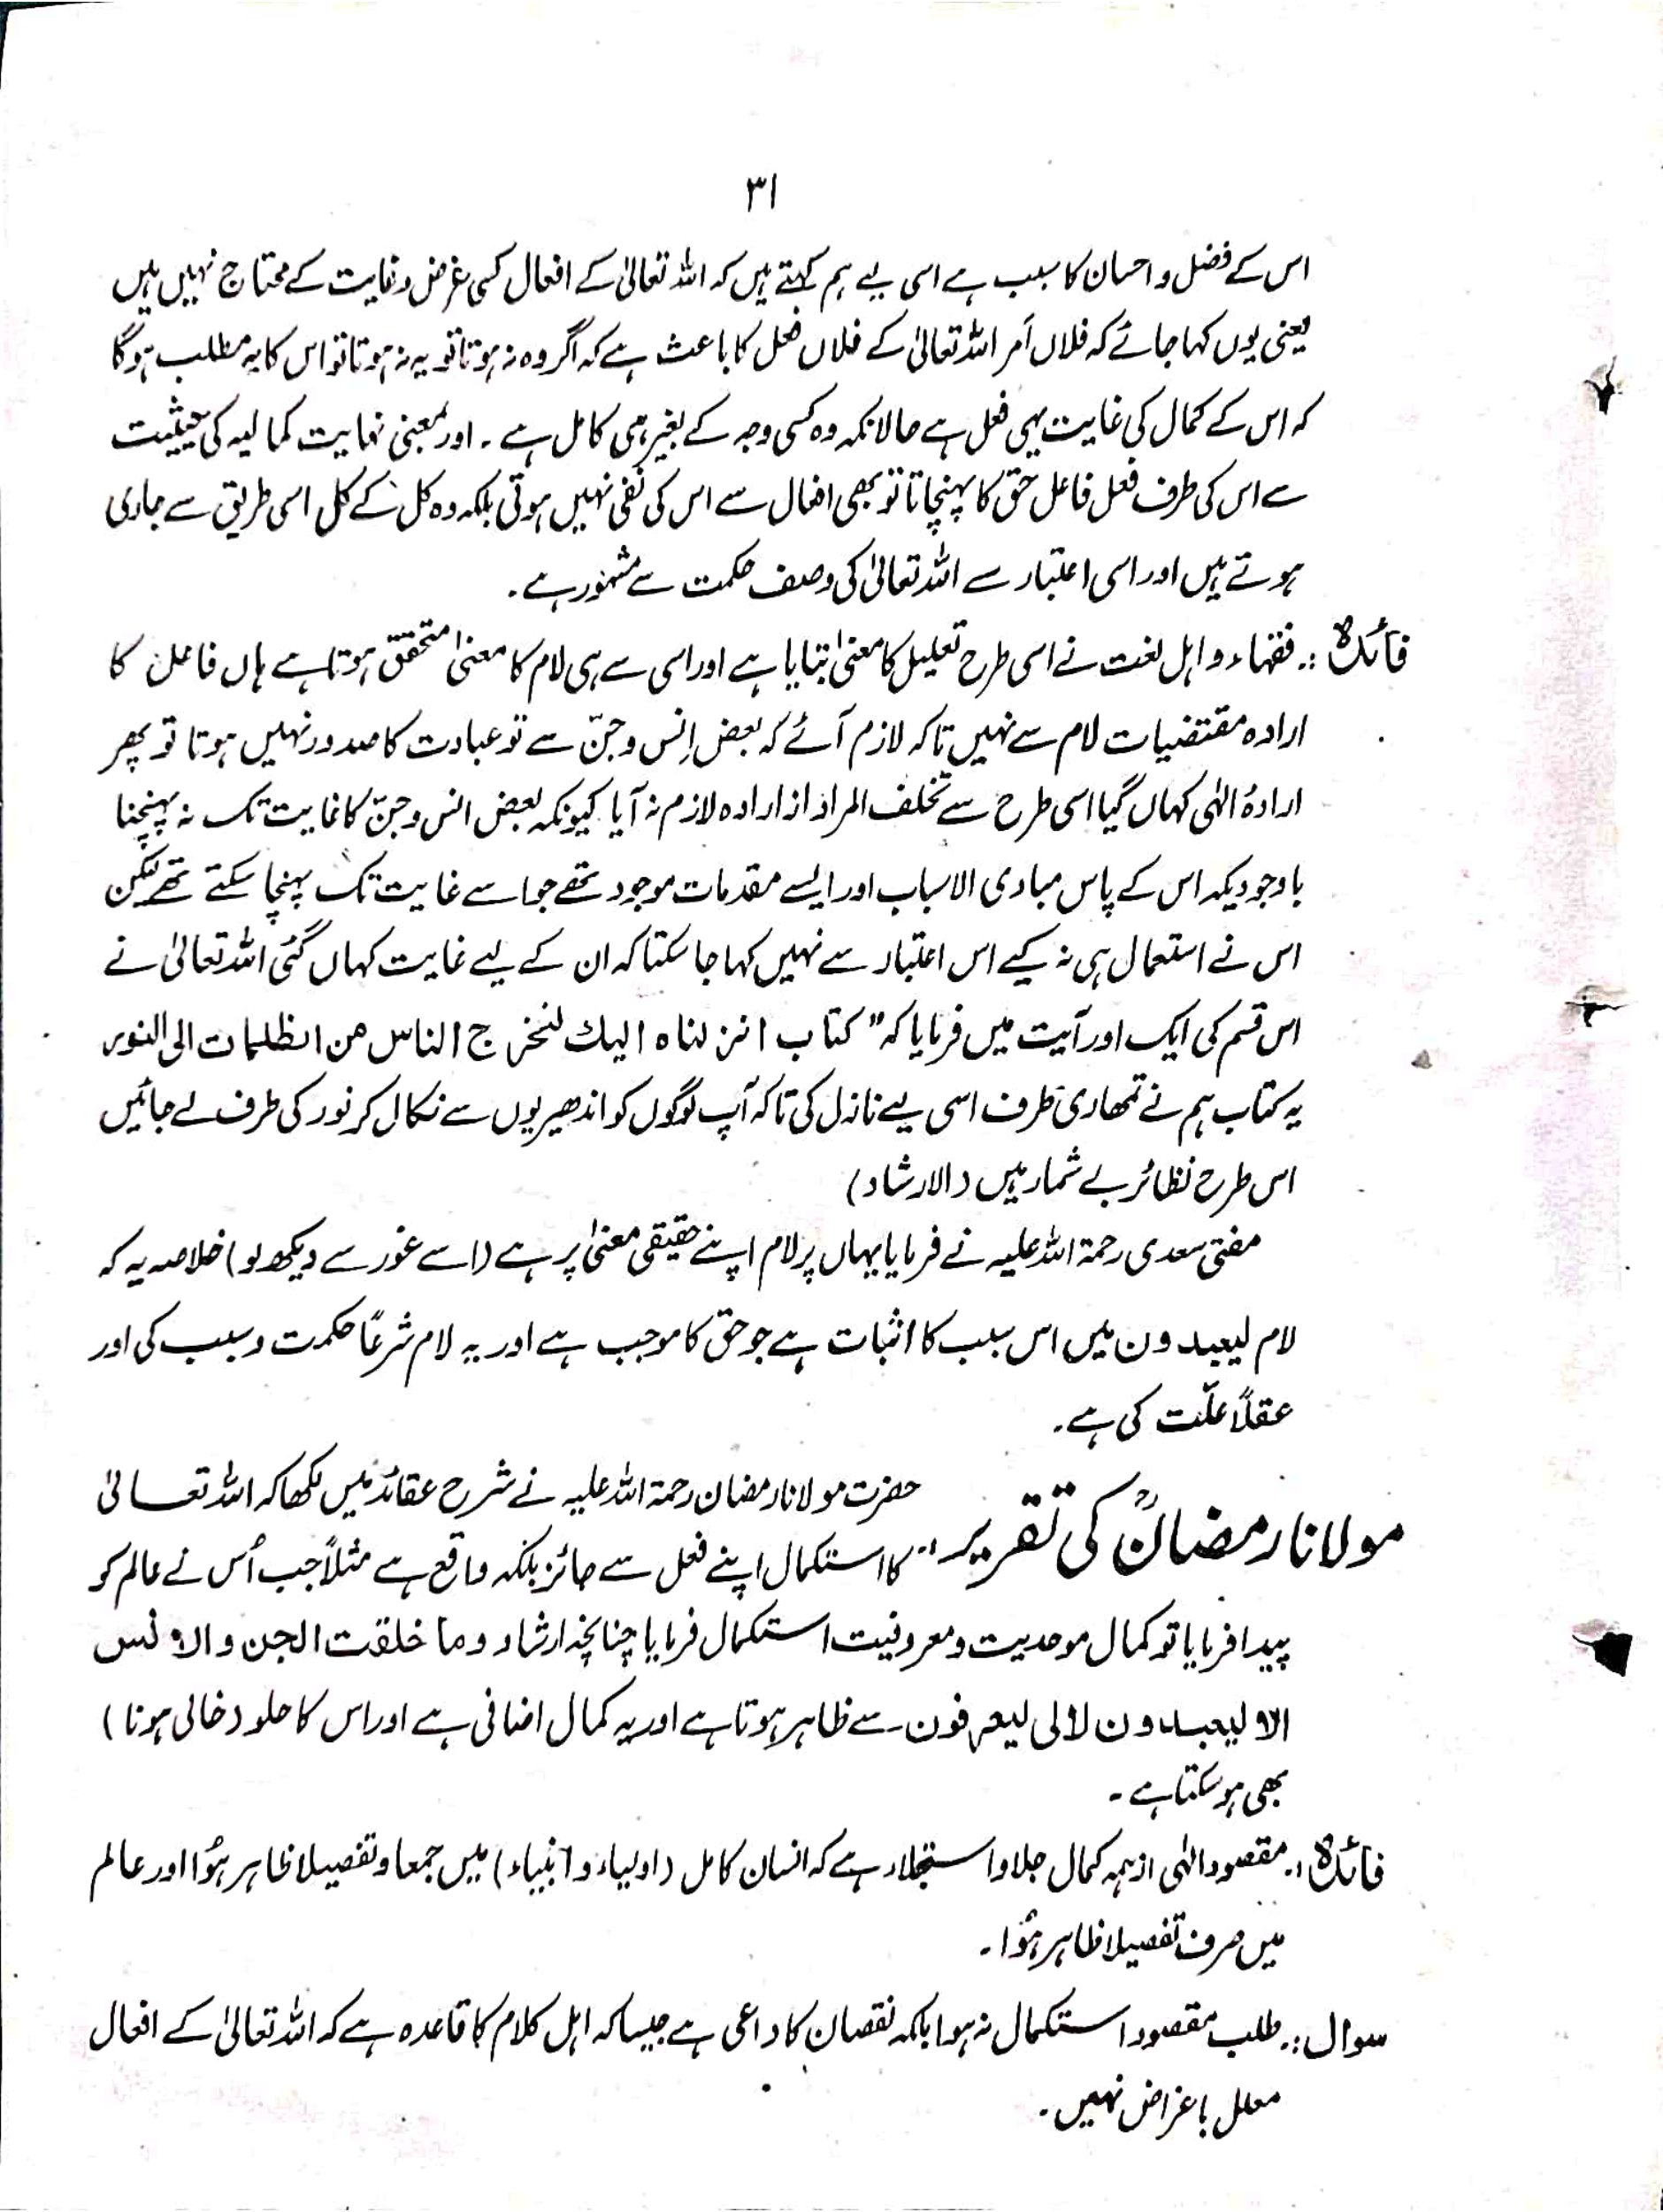 ۳۱
اس کے فضل و احسان کا سبب ہے اسی لیے ہم کہتے ہیں کہ اللہ تعالیٰ کے افعال کسی غرض و غایت کے محتاج نہیں ہیں
یعنی یوں کہا جائے کہ فلاں اَمر اللہ تعالیٰ کے فلاں فعل کا باعث ہے کہ اگر وہ نہ ہوتا تو یہ نہ ہوتا تو اس کا یہ مطلب ہوگا
کہ اس کے کمال کی غایت یہی فعل ہے حالانکہ وہ کسی وجہ کے بغیر ہی کامل ہے ۔ اور بمعنی نہایت کمالیہ کی حیثیت
سے اس کی طرف فعل فاعل حق کا پہنچاتا تو بھی افعال سے اس کی نفی نہیں ہوتی بلکہ وہ کل کے کل اسی طریق سے جاری
ہوتے ہیں اور اسی اعتبار سے اللہ تعالیٰ کی وصف حکمت سے مشہور ہے ۔
فائدہ :۔ فقہاء و اہل لغت نے اسی طرح تعلیل کا معنیٰ بتایا ہے اور اسی سے ہی لام کا معنیٰ متحقق ہوتا ہے ہاں فاعل کا
ارادہ مقتضیات لام سے نہیں تاکہ لازم آئے کہ بعض اِنس و جنّ سے تو عبادت کا صدور نہیں ہوتا تو پھر
ارادۂ الٰہی کہاں گیا اسی طرح سے تخلف المراد از ارادہ لازم نہ آیا کیونکہ بعض انس و جنّ کا غایت تک نہ پہنچنا
باوجودیکہ اس کے پاس مبادی الاسباب اور ایسے مقدمات موجود تھے جو اسے غایت تک پہنچا سکتے تھے لیکن
اس نے استعمال ہی نہ کیے اس اعتبار سے نہیں کہا جا سکتا کہ ان کے لیے غایت کہاں گئی اللہ تعالیٰ نے
اس قسم کی ایک اور آیت میں فرمایا کہ ” کتاب انزلناہ الیك لتخرج الناس من الظلمات الی النور
یہ کتاب ہم نے تمھاری طرف اسی لیے نازل کی تاکہ آپ لوگوں کو اندھیریوں سے نکال کر نور کی طرف لے جائیں
اس طرح نظائر بے شمار ہیں (الارشاد)
مفتی سعدی رحمۃ اللہ علیہ نے فرمایا یہاں پر لام اپنے حقیقی معنیٰ پر ہے (اسے غور سے دیکھ لو) خلاصہ یہ کہ
لام لیعبدون میں اس سبب کا اثبات ہے جو حق کا موجب ہے اور یہ لام شرعًا حکمت و سبب کی اور
عقلاً علّت کی ہے ۔
مولانا رمضانؒ کی تقریر :۔ حضرت مولانا رمضان رحمۃ اللہ علیہ نے شرح عقائد میں لکھا کہ اللہ تعالیٰ
کا استکمال اپنے فعل سے جائز بلکہ واقع ہے مثلاً جب اُس نے عالم کو
پیدا فرمایا تو کمال موحدیت و معروفیت استکمال فرمایا چنانچہ ارشاد وما خلقت الجن والانس
الا لیعبدون لالی لیعرفون سے ظاہر ہوتا ہے اور یہ کمال اضافی ہے اور اس کا خلو (خالی ہونا)
بھی ہو سکتا ہے ۔
فائدہ :۔ مقصود الٰہی از ہمہ کمال جلا و استجلاء ہے کہ انسان کامل (اولیاء و انبیاء) میں جمعا و تفصیلا ظاہر ہوُا اور عالم
میں صرف تفصیلا ظاہر ہوُا ۔
سوال :۔ طلب مقصود استکمال نہ ہوا بلکہ نقصان کا داعی ہے جیسا کہ اہل کلام کا قاعدہ ہے کہ اللہ تعالیٰ کے افعال
معلل باغراض نہیں ۔